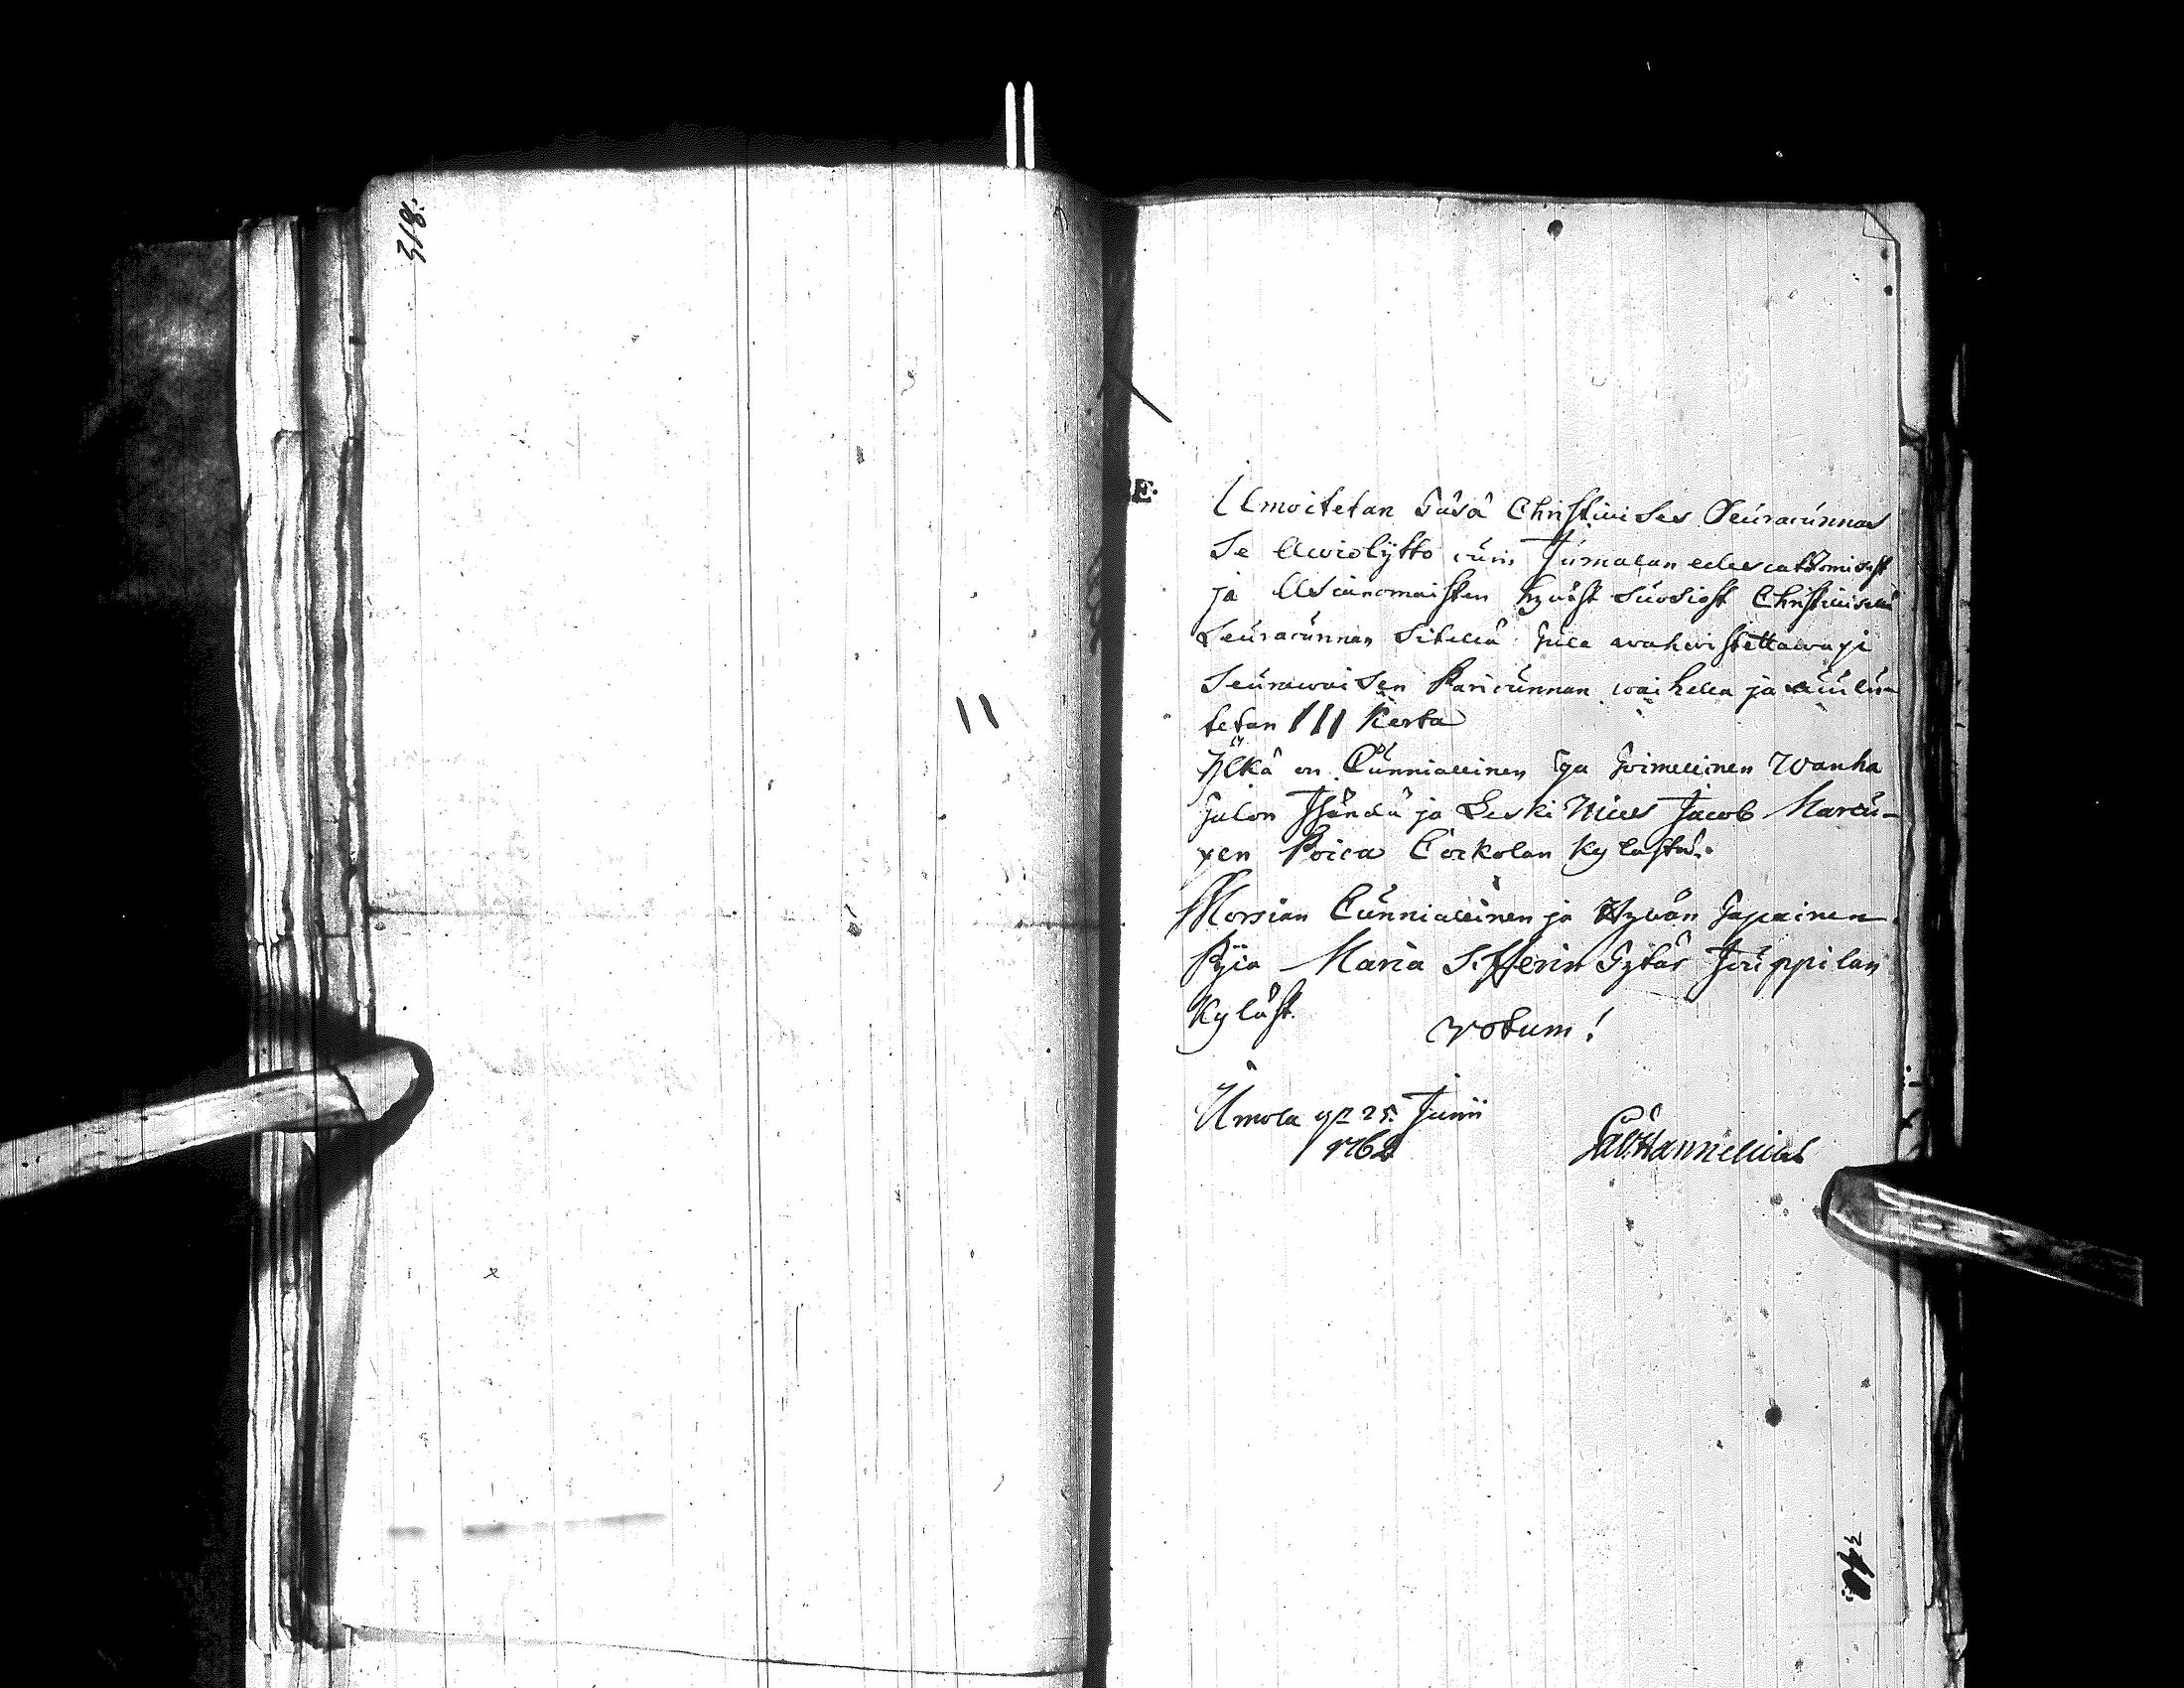 318.
E.
Ilmoitetan Täsä Christillises Seuracunnas
Se Awiolijtto cuin Jumalan edescatzomisest
ja Asianomaisten hywäst Suosiost Christillisellä
Seuracunnan Sitellä tule wahwistettawaxi
Seurawaisen Paricunnan waihella ja cuulu-
tetan III Kerta
Ylkä on Cunniallinen ja Toimellinen Wanha
Talon Isändä ja Leski Mies Jacob Marcu-
xen Poica Corkolan Kylästä.
Morsian Cunniallinen ja Hywän Tapainen
Pijca Maria Sifferin Tytär Juppilan
Kyläst.
votum!
Urnola 25. Junii
1762
Hannelius